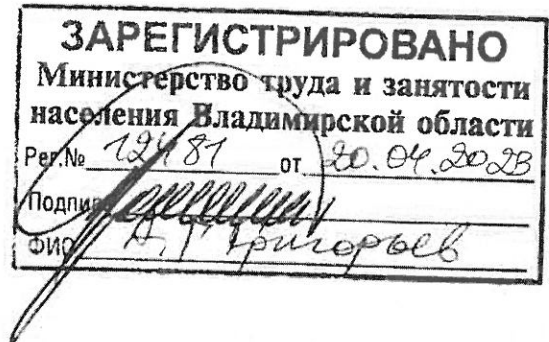 ЗАРЕГИСТРИРОВАНО
Министерство труда и занятости
населения Владимирской области
Рег.№ 12481 от 20.04.2023
Подпись
ФИО Григорьев